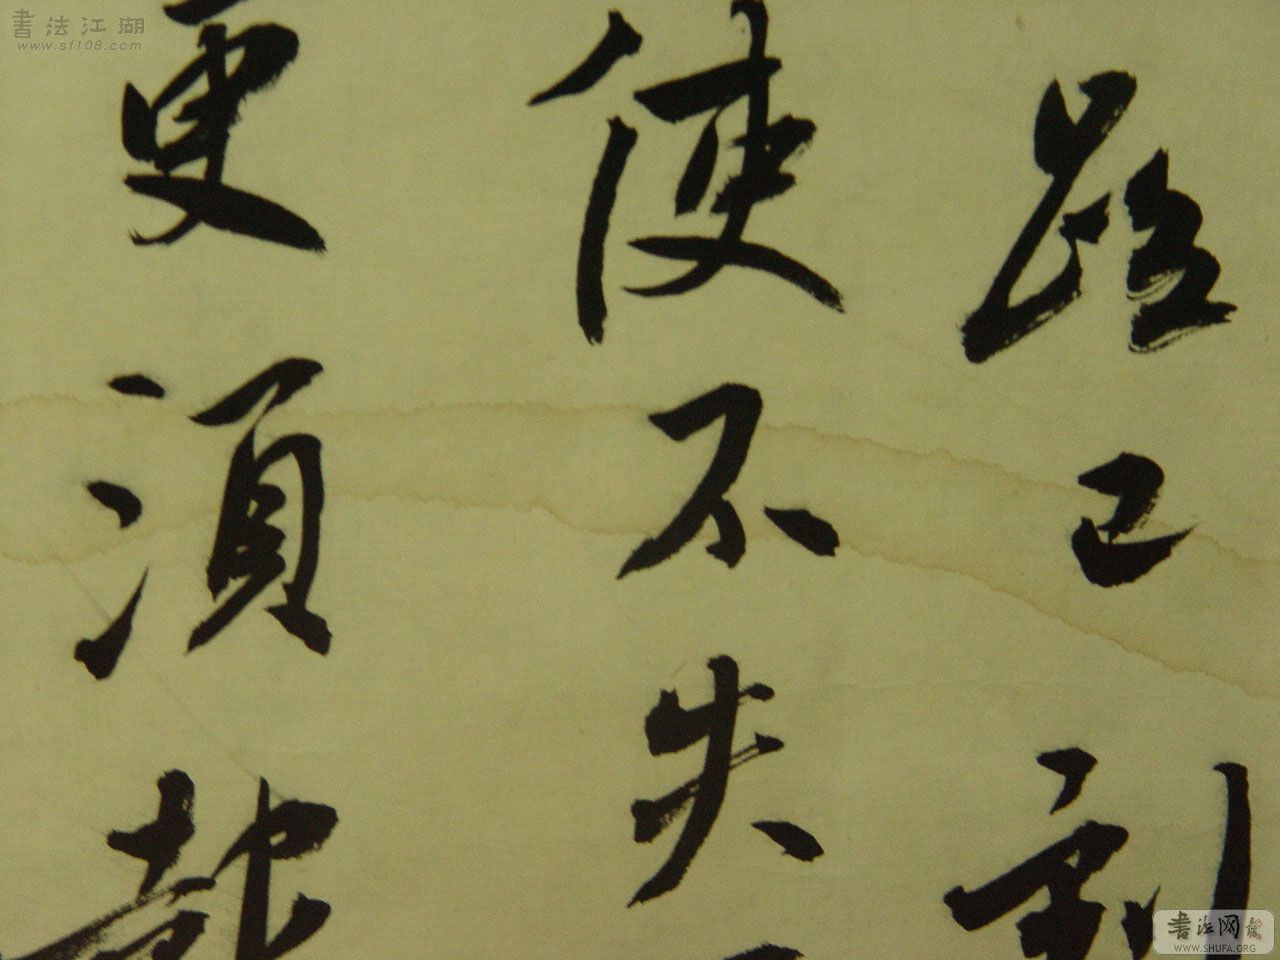 書法江湖
www.sf108.com
路已
使不失
更須
書法网
WWW.SHUFA.ORG